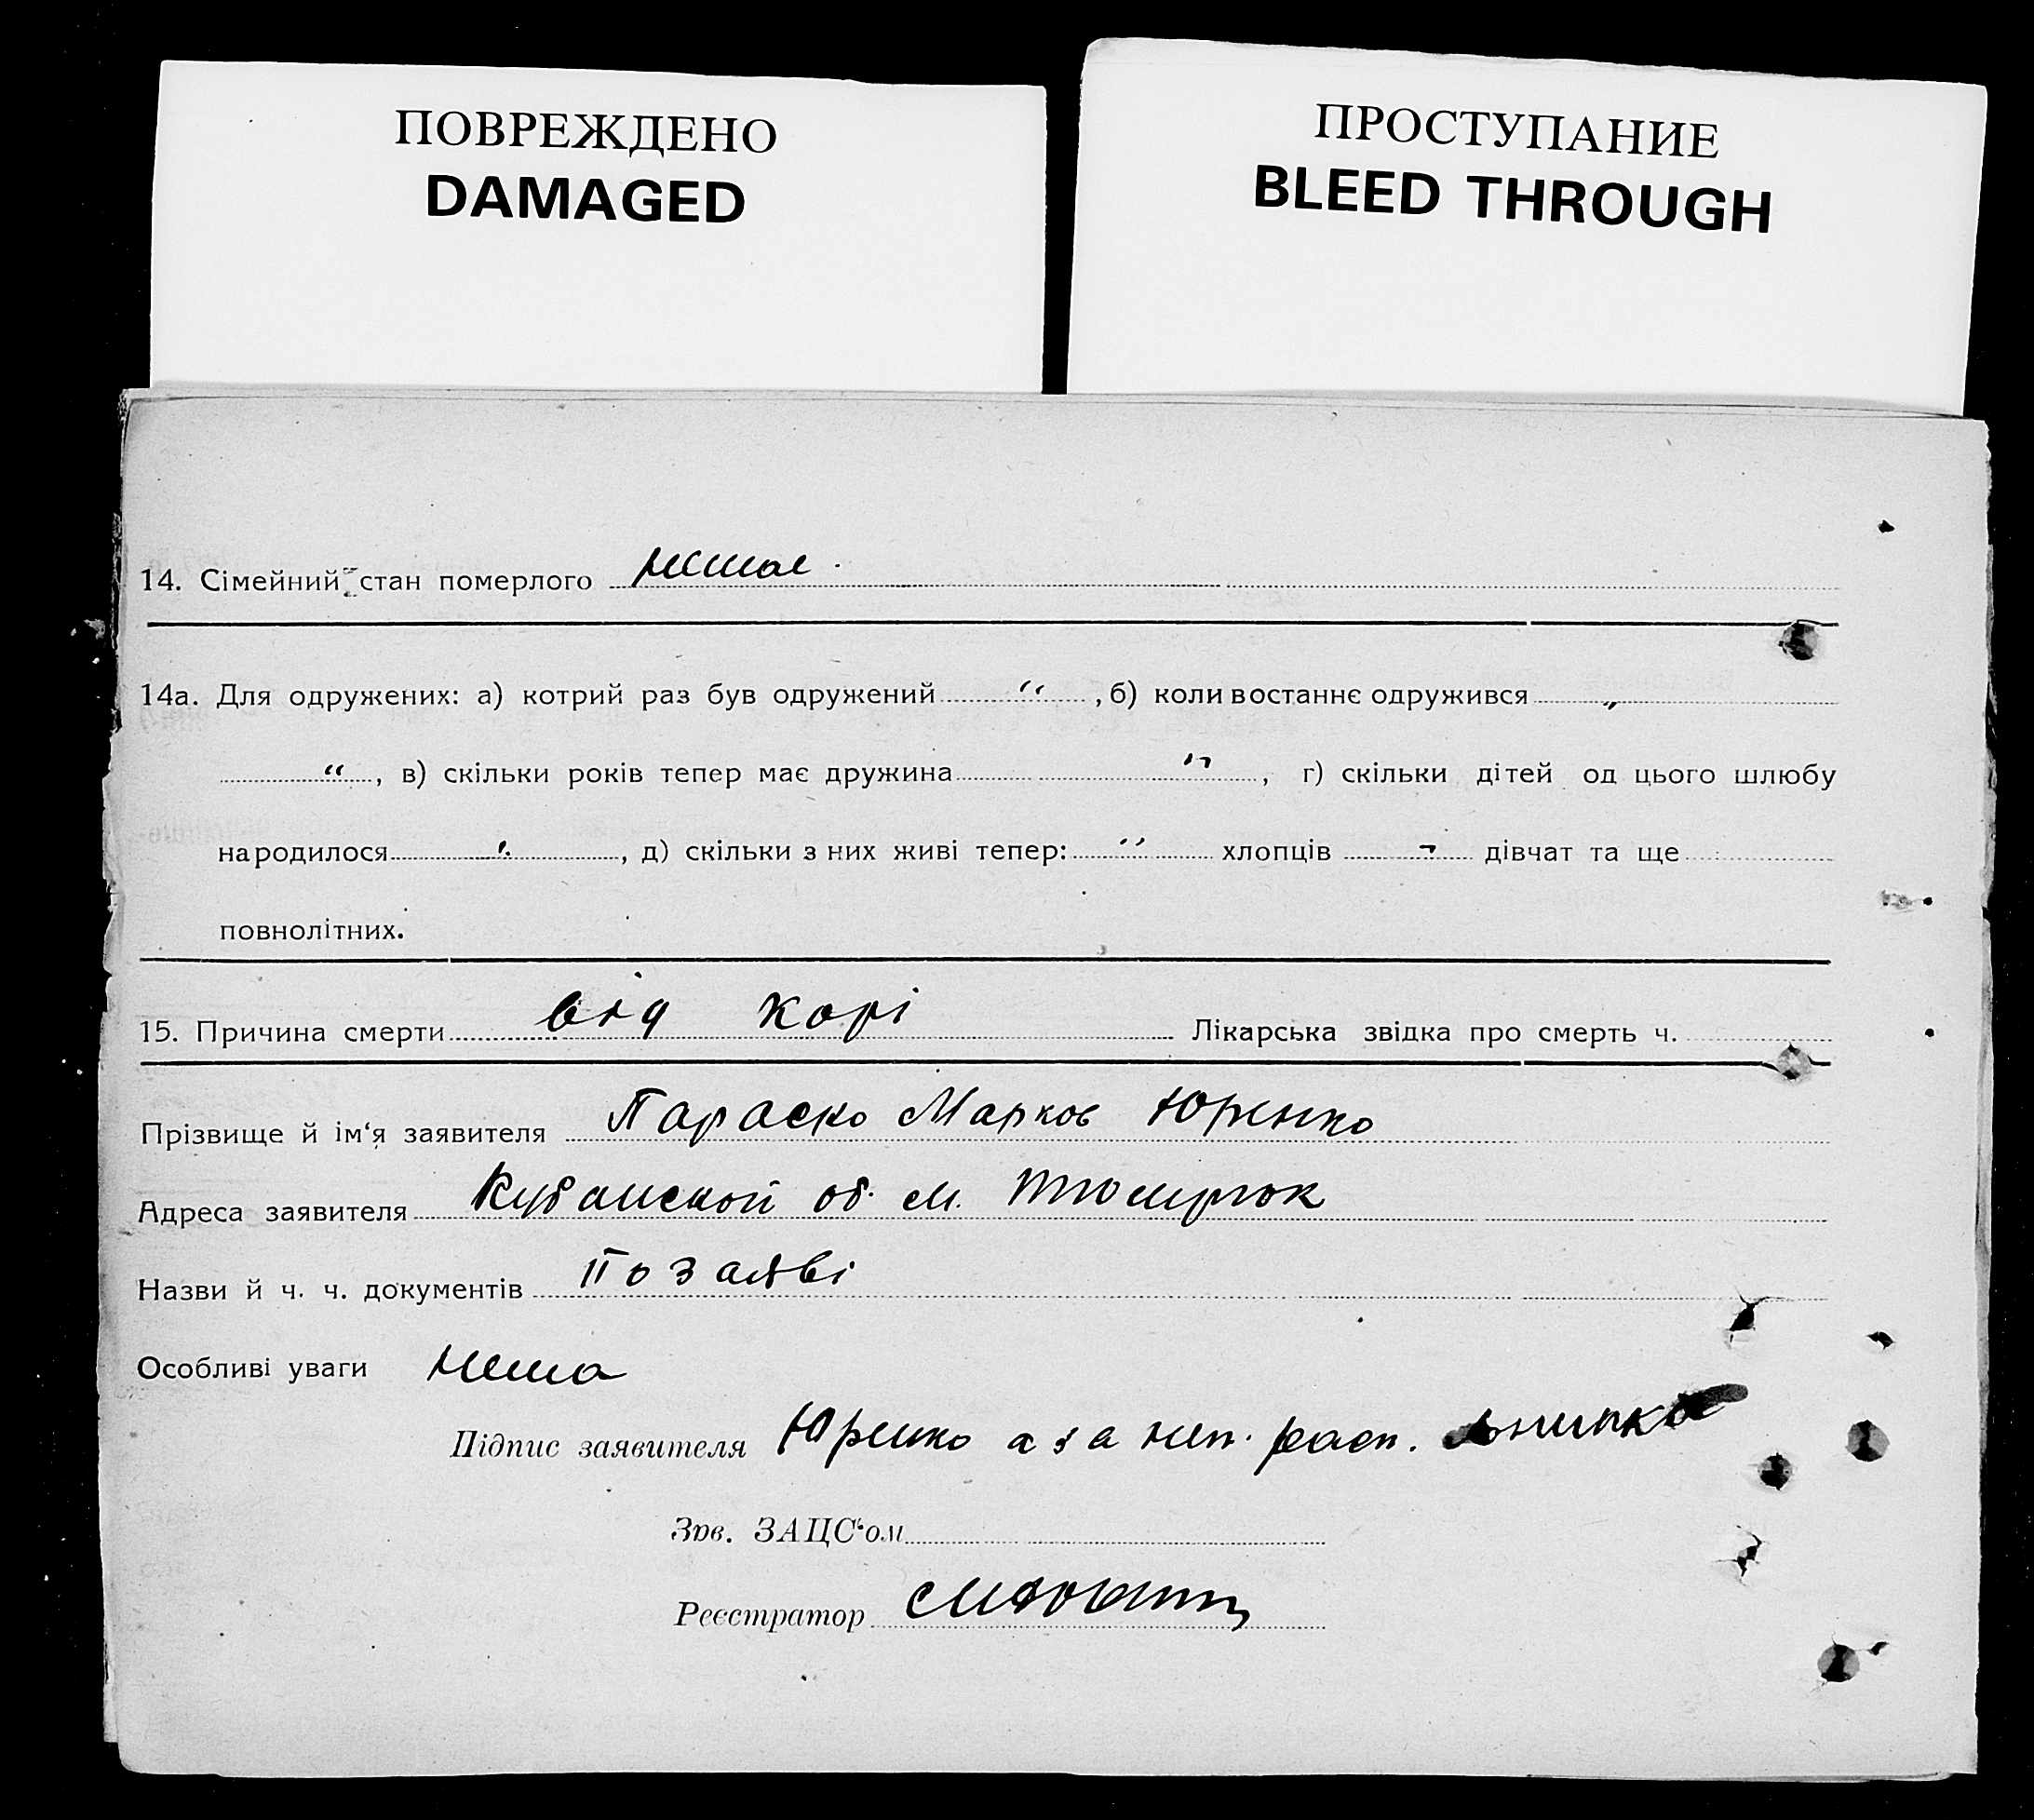 ПОВРЕЖДЕНО
DAMAGED
ПРОСТУПАНИЕ
BLEED THROUGH
14. Сімейний стан померлого
14а. Для одружених: а) котрий раз був одружений " , б) коли востаннє одружився "
" , в) скільки років тепер має дружина " , г) скільки дітей од цього шлюбу
народилося " , д) скільки з них живі тепер: " хлопців " дівчат та ще
повнолітних.
15. Причина смерти від корі Лікарська звідка про смерть ч.
Прізвище й ім'я заявителя Параско Марков Юренко
Адреса заявителя Кубанской об. м. Тюмрюк
Назви й ч. ч. документів по заяві
Особливі уваги нема
Підпис заявителя Юренко а за неп. расп.
Зав. ЗАЦС'ом
Реєстратор